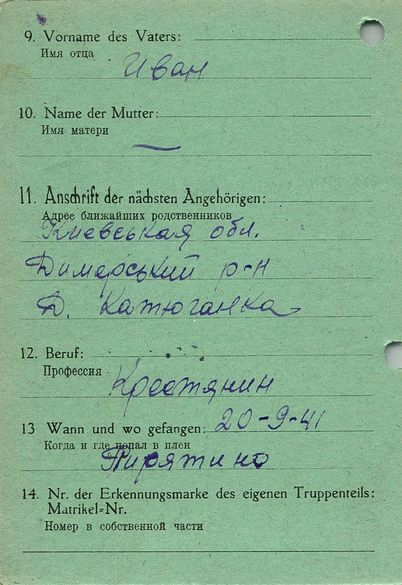 9. Vorname des Vaters:
Имя отца
Иван
10. Name der Mutter:
Имя матери
—
11. Anschrift der nächsten Angehörigen:
Адрес ближайших родственников
Киевськая обл.
Димерський р-н
Д. Катюганка
12. Beruf:
Профессия
Крестянин
13 Wann und wo gefangen: 20-9-41
Когда и где попал в плен
Пирятино
14. Nr. der Erkennungsmarke des eigenen Truppenteils:
Matrikel-Nr.
Номер в собственной части